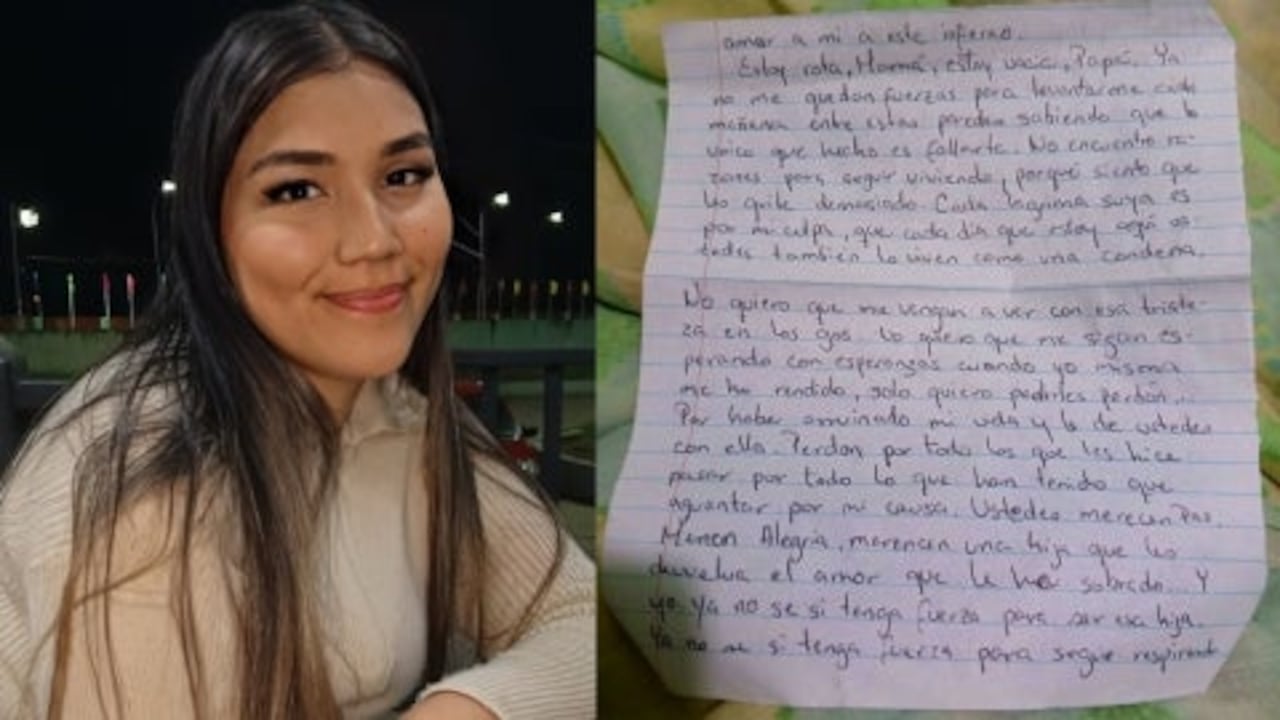 amor a mi a este infierno.
Estoy rota, Mamá, estoy vacia, Papá. Ya
no me quedan fuerzas para levantarme cada
mañana entre estas paredes sabiendo que lo
unico que hecho es fallarte. No encuentro ra-
zones para seguir viviendo, porque siento que
les quite demasiado. Cada lagrima suya es
por mi culpa, que cada dia que estoy aqá us
tedes tambien lo viven como una condena.
No quiero que me vengan a ver con esa triste-
za en los ojos. No quiero que me sigan es-
perando con esperanzas cuando yo misma
me he rendido, solo quiero pedirles perdón...
Por haber arruinado mi vida y la de ustedes
con ella. Perdon por todo los que les hice
pasar por todo lo que han tenido que
aguantar por mi causa. Ustedes merecen Paz.
Merecen Alegria, merencen una hija que les
devuelva el amor que le ha sobrado... Y
yo ya no se si tenga fuerza para ser esa hija.
Ya no se si tenga fuerza para seguir respirand